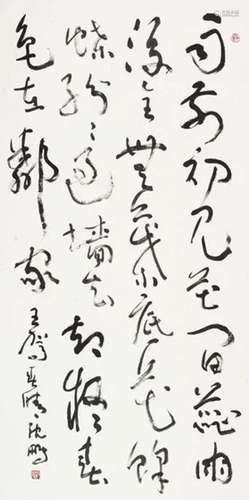 雨前初見花間蕊雨
後全無葉底花蜂
蝶紛〻過墻去却疑春
色在鄰家
王駕春晴沈鵬